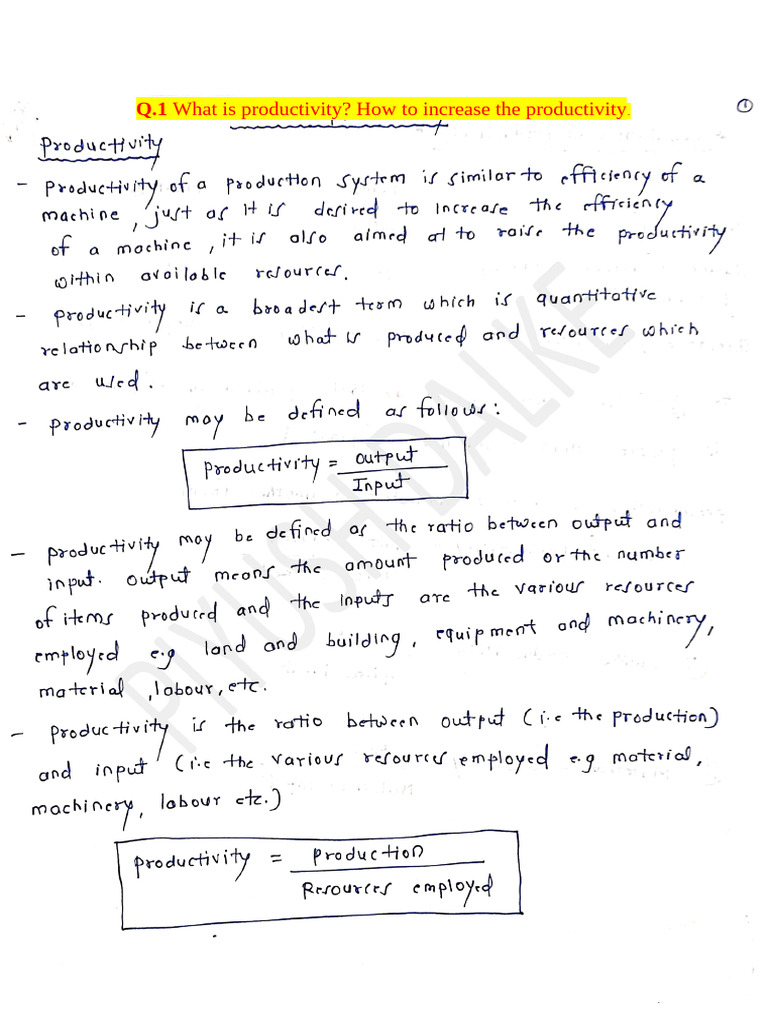 Q.1 What is productivity? How to increase the productivity.
1
Productivity
- Productivity of a production system is similar to efficiency of a
machine, just as it is desired to increase the efficiency
of a machine, it is also aimed at to raise the productivity
within available resources.
- Productivity is a broadest term which is quantitative
relationship between what is produced and resources which
are used.
- Productivity may be defined as follows:
Productivity = Output
Input
- Productivity may be defined as the ratio between output and
input. Output means the amount produced or the number
of items produced and the inputs are the various resources
employed e.g land and building, equipment and machinery,
material, labour, etc.
- Productivity is the ratio between output (i.e the production)
and input (i.e the various resources employed e.g material,
machinery, labour etc.)
Productivity = Production
Resources employed
PIYUSH DALKE